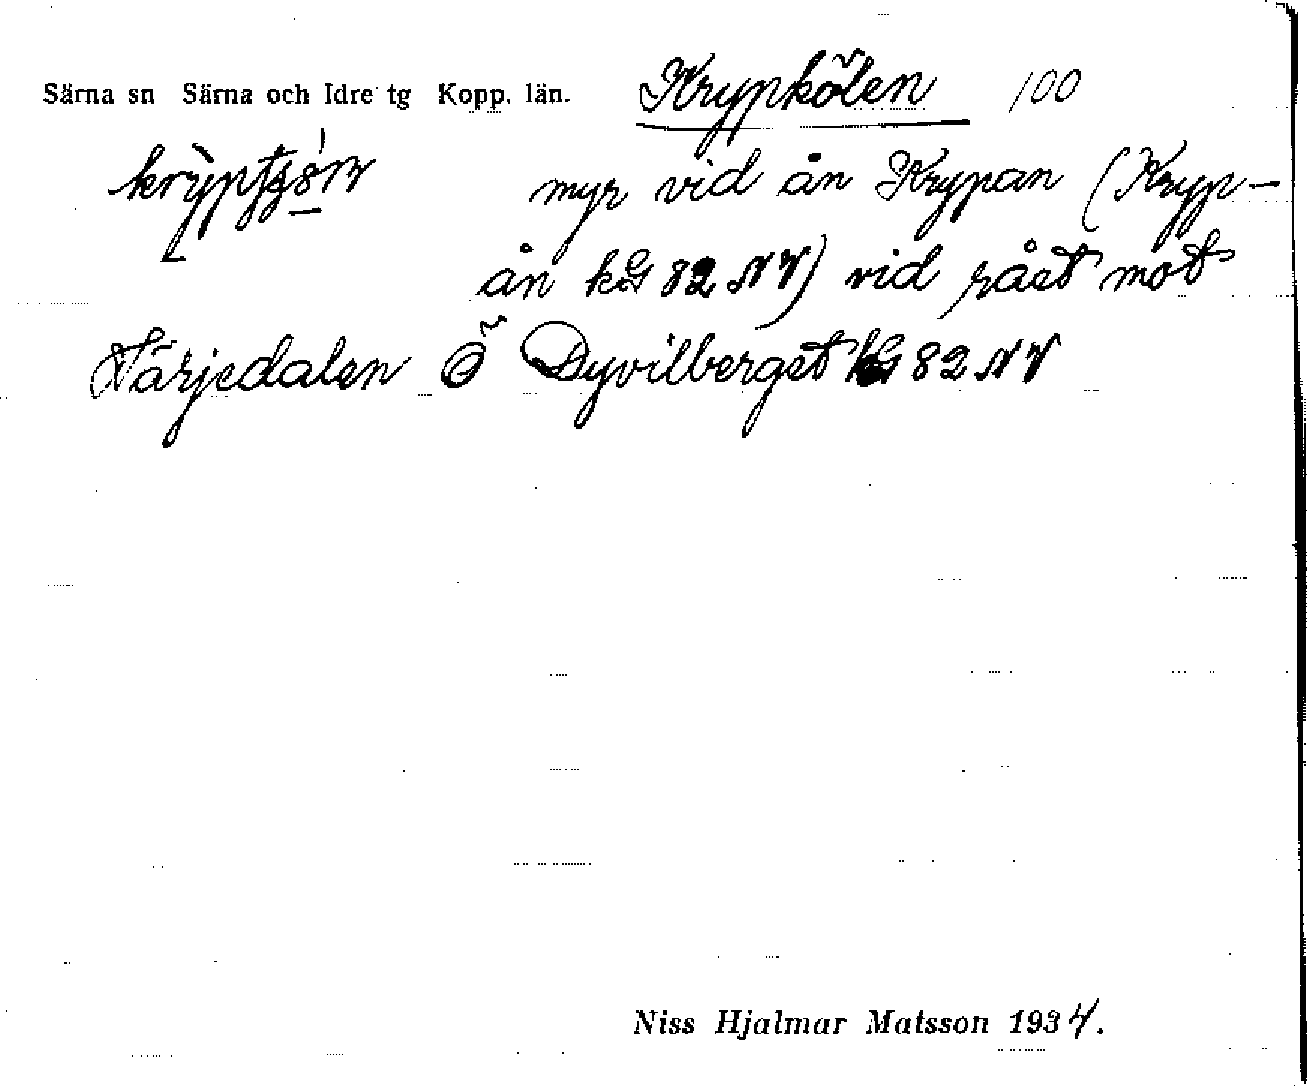 Särna sn Särna och Idre tg Kopp. län. Krypkölen 100
myr vid ån Krypan (Kryp-
ån kG 82 NV) vid rået mot
Härjedalen Ö Dyvilberget kG 82 NV
Niss Hjalmar Matsson 1934.